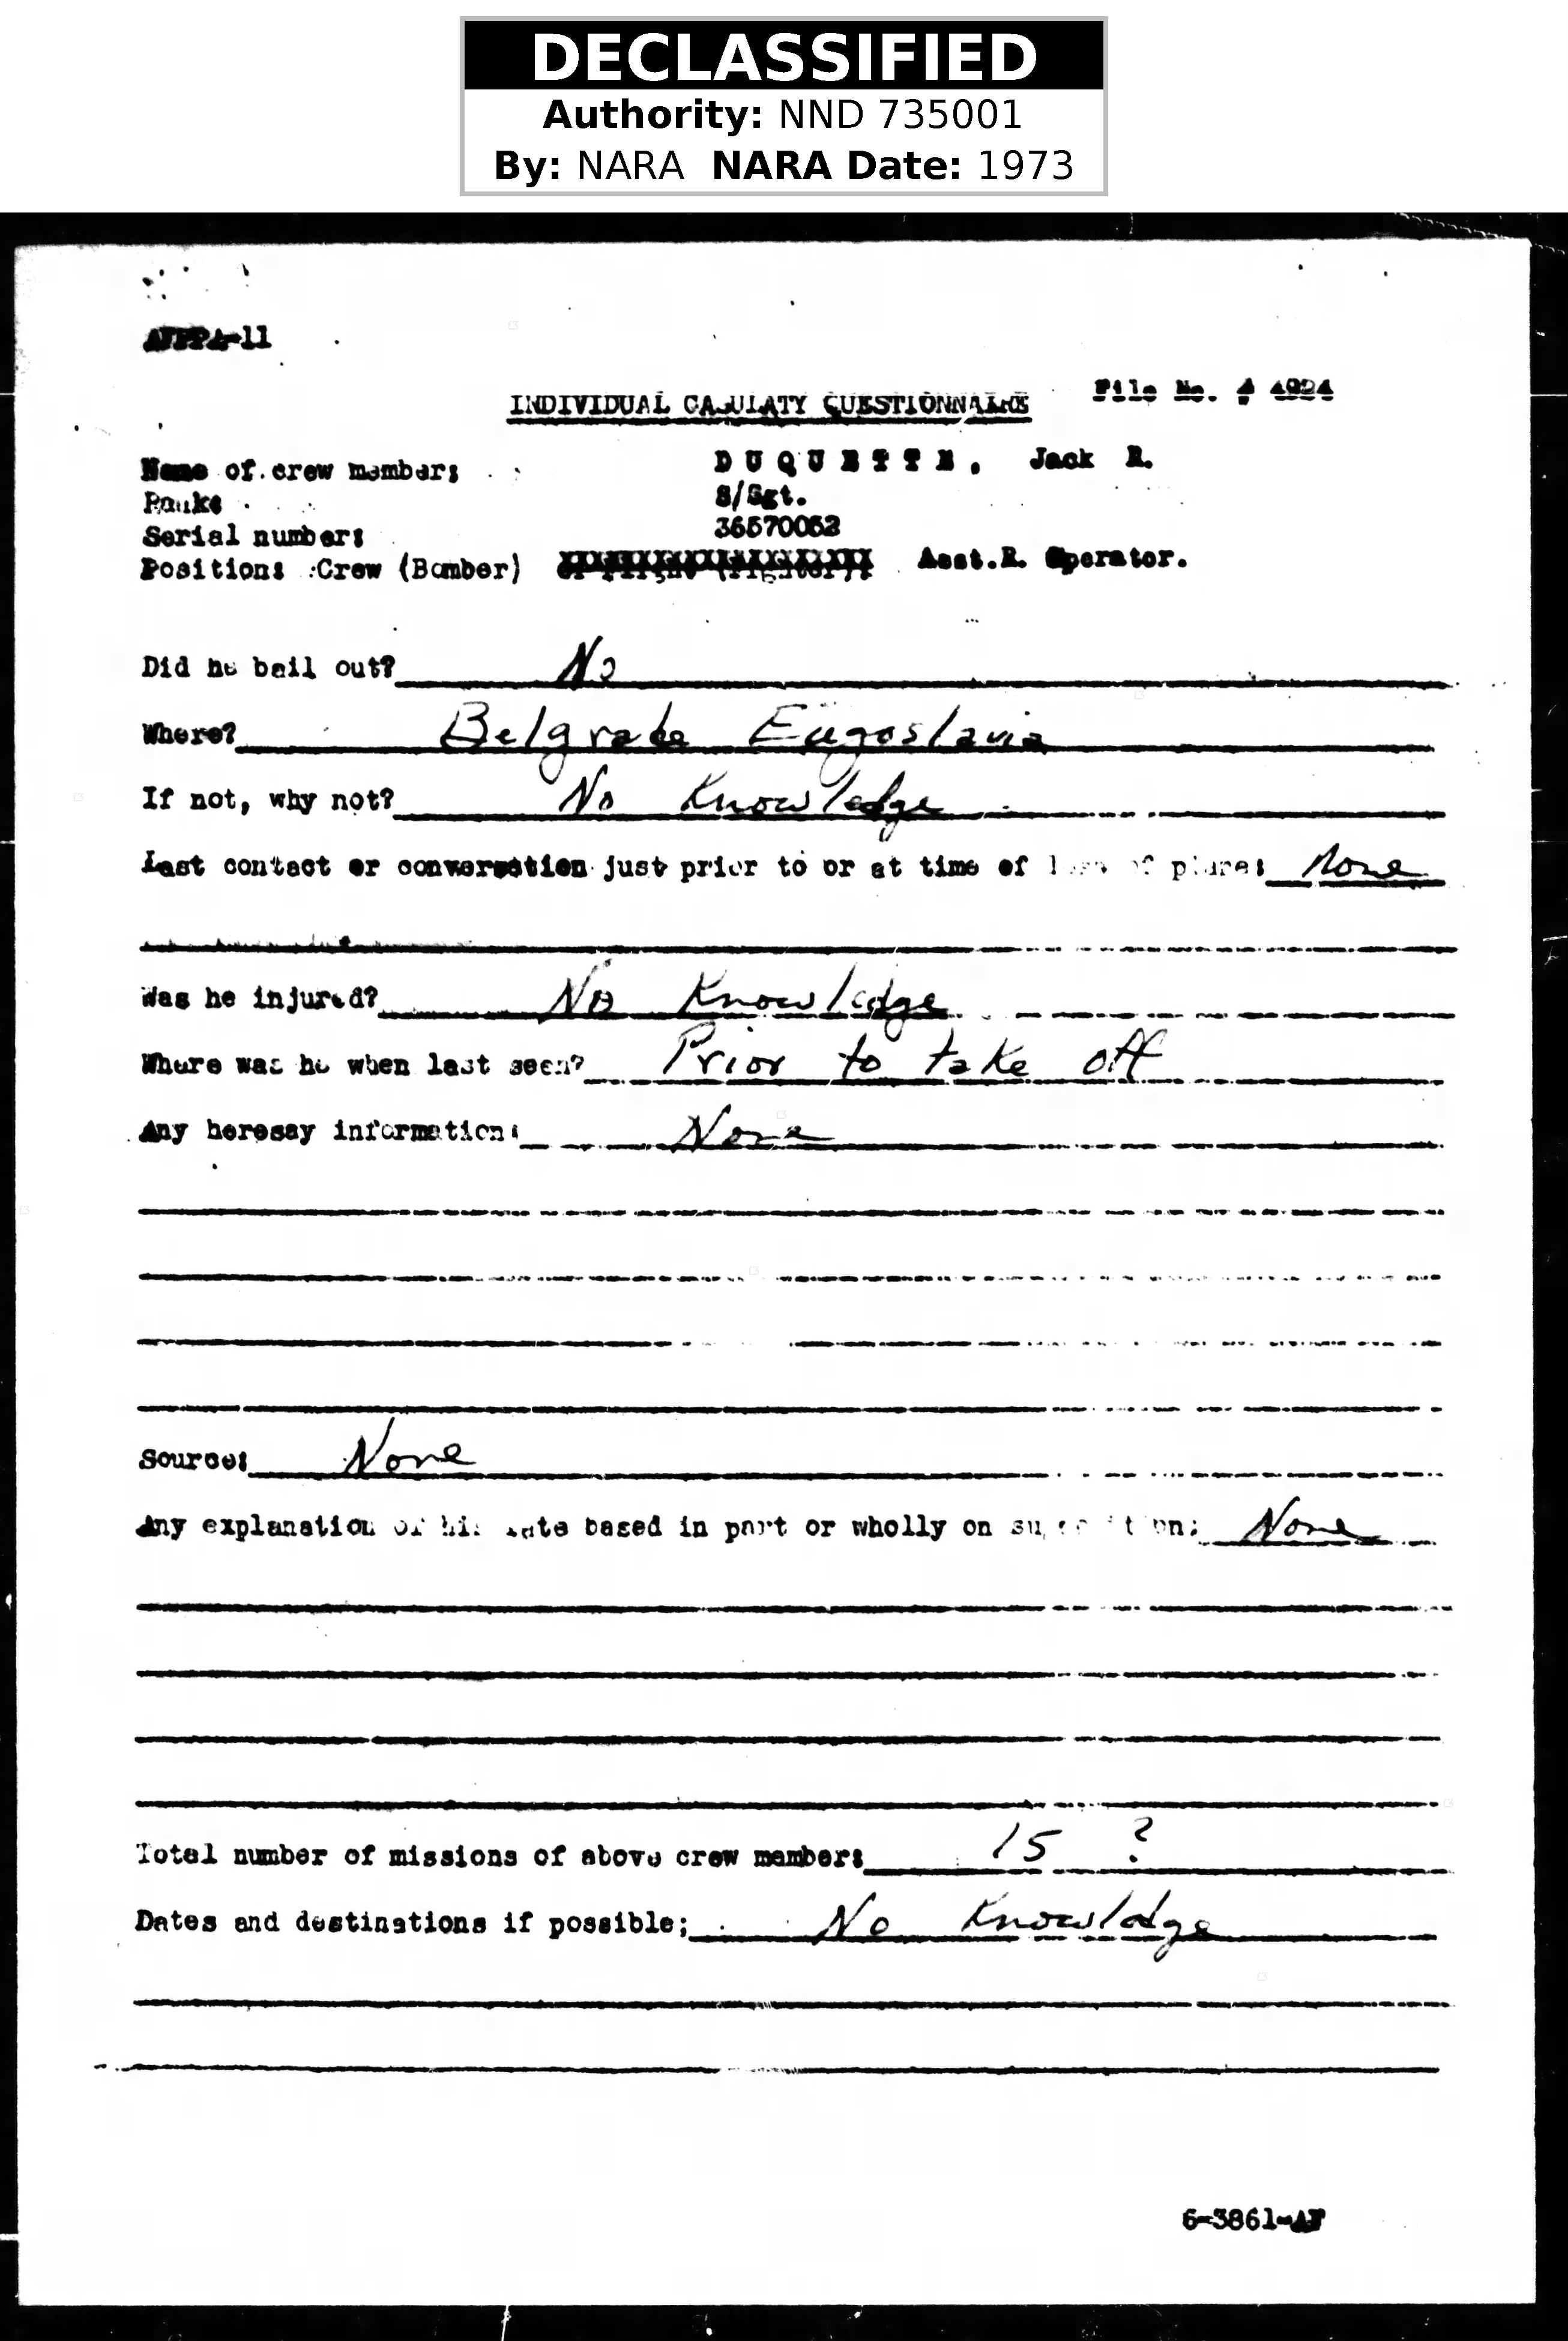 DECLASSIFIED
Authority: NND 735001
By: NARA NARA Date: 1973
AFPPA-11
INDIVIDUAL CASULATY QUESTIONNAIRE File No. # 4924
Name of crew member: DUQUETTE, Jack R.
Rank: S/Sgt.
Serial number:
Position: Crew (Bomber) or Flight (Fighter): Asst.R. Operator.
Did he bail out? No
Where? Belgrade Eugoslavia
If not, why not? No Knowledge
Last contact or conversation just prior to or at time of loss of plane: None
Was he injured? No Knowledge
Where was he when last seen? Prior to take off
Any heresay information: None
Source: None
Any explanation of his fate based in part or wholly on supposition: None
Total number of missions of above crew member: 15 ?
Dates and destinations if possible; No Knowldge
6-3861-AF